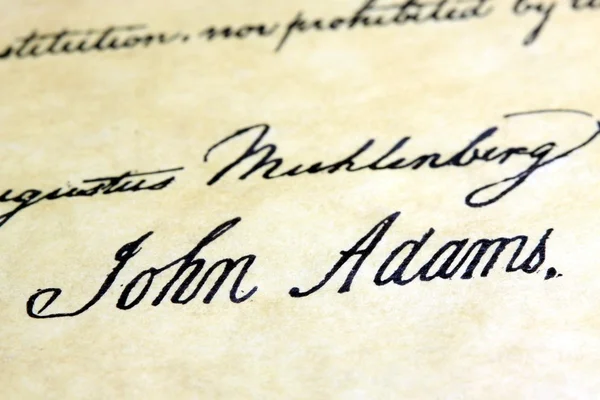 stitution, nor prohibited by
ugustus Muhlenberg
John Adams.